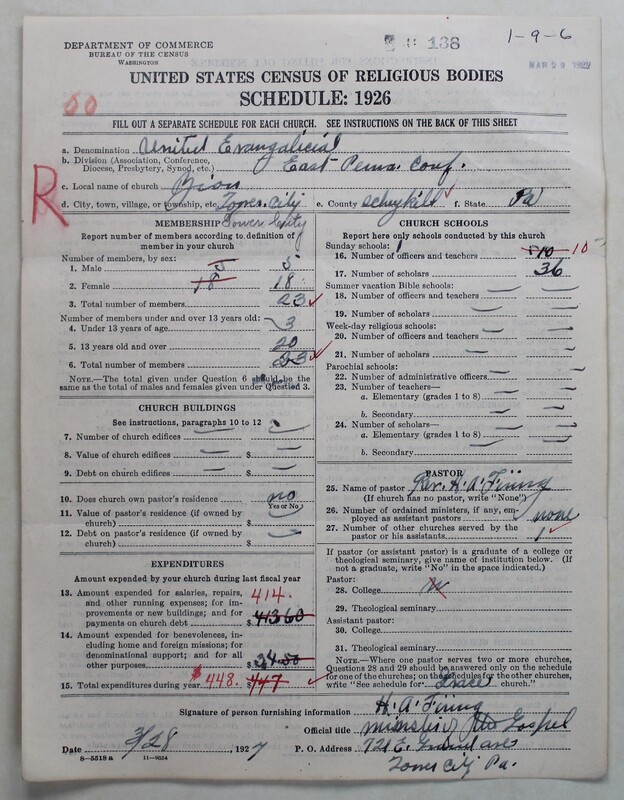 DEPARTMENT OF COMMERCE
BUREAU OF THE CENSUS
WASHINGTON
138
1-9-6
MAR 29 1927
UNITED STATES CENSUS OF RELIGIOUS BODIES
SCHEDULE: 1926
FILL OUT A SEPARATE SCHEDULE FOR EACH CHURCH. SEE INSTRUCTIONS ON THE BACK OF THIS SHEET
a. Denomination United Evangelicial
b. Division (Association, Conference, Diocese, Presbytery, Synod, etc.) East Penna. Conf.
R
c. Local name of church Zion
d. City, town, village, or township, etc. Tower City e. County Schuylkill f. State Pa
Tower City
MEMBERSHIP
Report number of members according to definition of member in your church
Number of members, by sex:
1. Male 5 5
2. Female 18 18
3. Total number of members 23
Number of members under and over 13 years old:
4. Under 13 years of age 3
5. 13 years old and over 20
6. Total number of members 23
NOTE.—The total given under Question 6 should be the same as the total of males and females given under Question 3.
CHURCH BUILDINGS
See instructions, paragraphs 10 to 12
7. Number of church edifices
8. Value of church edifices $
9. Debt on church edifices $
10. Does church own pastor's residence no
Yes or No
11. Value of pastor's residence (if owned by church) $
12. Debt on pastor's residence (if owned by church) $
EXPENDITURES
Amount expended by your church during last fiscal year
13. Amount expended for salaries, repairs, and other running expenses; for improvements or new buildings; and for payments on church debt $ 413 60 414.
14. Amount expended for benevolences, including home and foreign missions; for denominational support; and for all other purposes $ 34.50
15. Total expenditures during year $448. $447
CHURCH SCHOOLS
Report here only schools conducted by this church
Sunday schools: 1
16. Number of officers and teachers 10 10
17. Number of scholars 36
Summer vacation Bible schools:
18. Number of officers and teachers
19. Number of scholars
Week-day religious schools:
20. Number of officers and teachers
21. Number of scholars
Parochial schools:
22. Number of administrative officers
23. Number of teachers—
a. Elementary (grades 1 to 8)
b. Secondary
24. Number of scholars—
a. Elementary (grades 1 to 8)
b. Secondary
PASTOR
25. Name of pastor Rev. H. A. Firing
(If church has no pastor, write "None")
26. Number of ordained ministers, if any, employed as assistant pastors none
27. Number of other churches served by the pastor or his assistants 1
If pastor (or assistant pastor) is a graduate of a college or theological seminary, give name of institution below. (If not a graduate, write "No" in the space indicated.)
Pastor:
28. College
29. Theological seminary
Assistant pastor:
30. College
31. Theological seminary
NOTE.—Where one pastor serves two or more churches, Questions 28 and 29 should be answered only on the schedule for one of the churches; on the schedules for the other churches, write "See schedule for Grace church."
Signature of person furnishing information H. A. Firing
Official title minister of the Gospel
Date 3/28 1927 P. O. Address 721 E.
Tower City Pa.
8—5518 a 11—9054